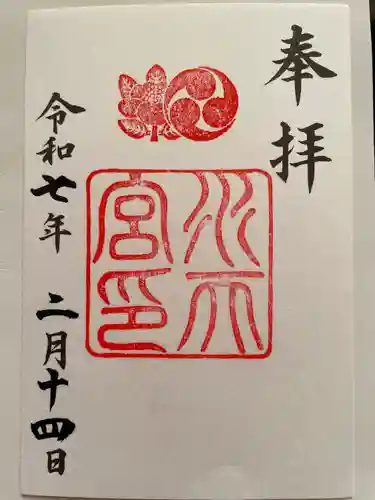 奉拝
水天
宮印
令和七年 二月十四日